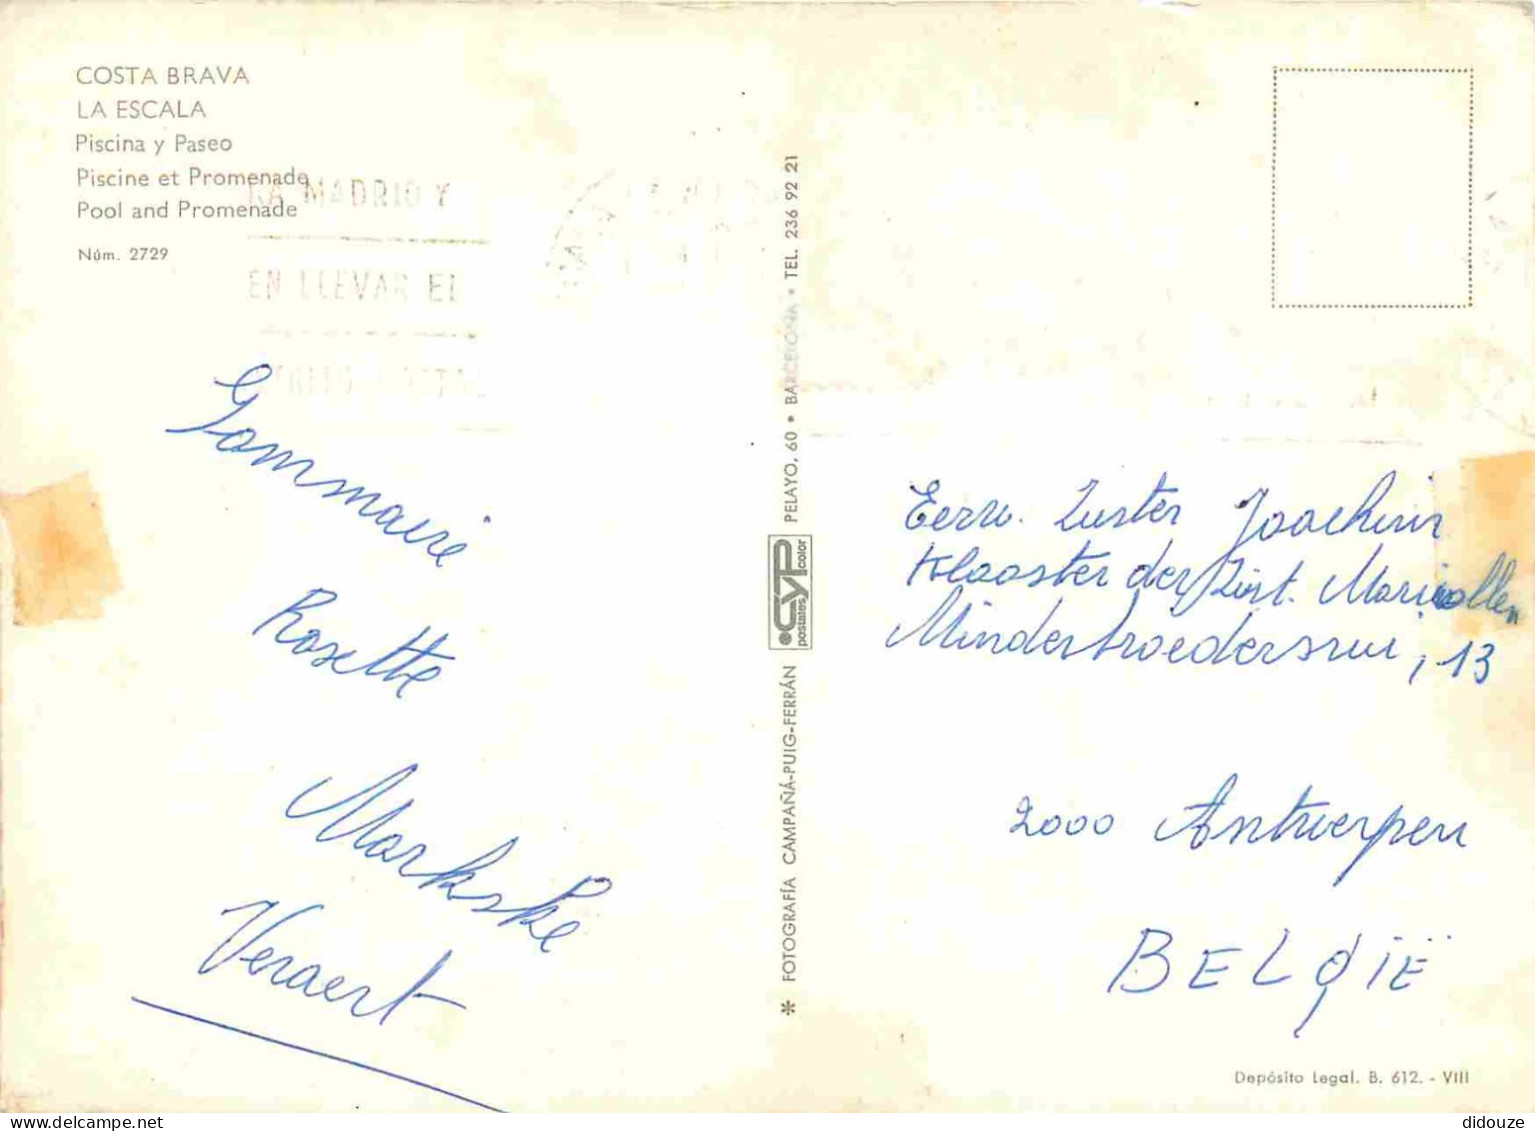 COSTA BRAVA
LA ESCALA
Piscina y Paseo
Piscine et Promenade
Pool and Promenade
Núm. 2729
MADRID Y
EN LLEVAR EL
Gommaire
Rosette
Markske
Veraert
* FOTOGRAFÍA CAMPAÑÁ-PUIG-FERRÁN
CYP color
postales
PELAYO, 60 • BARCELONA • TEL. 236 92 21
Eerw. Zuster Joachim
Klooster der Zust. Maricollen
Minderbroedersrui, 13
2000 Antwerpen
BELGIË
Depósito Legal. B. 612. - VIII
didouze